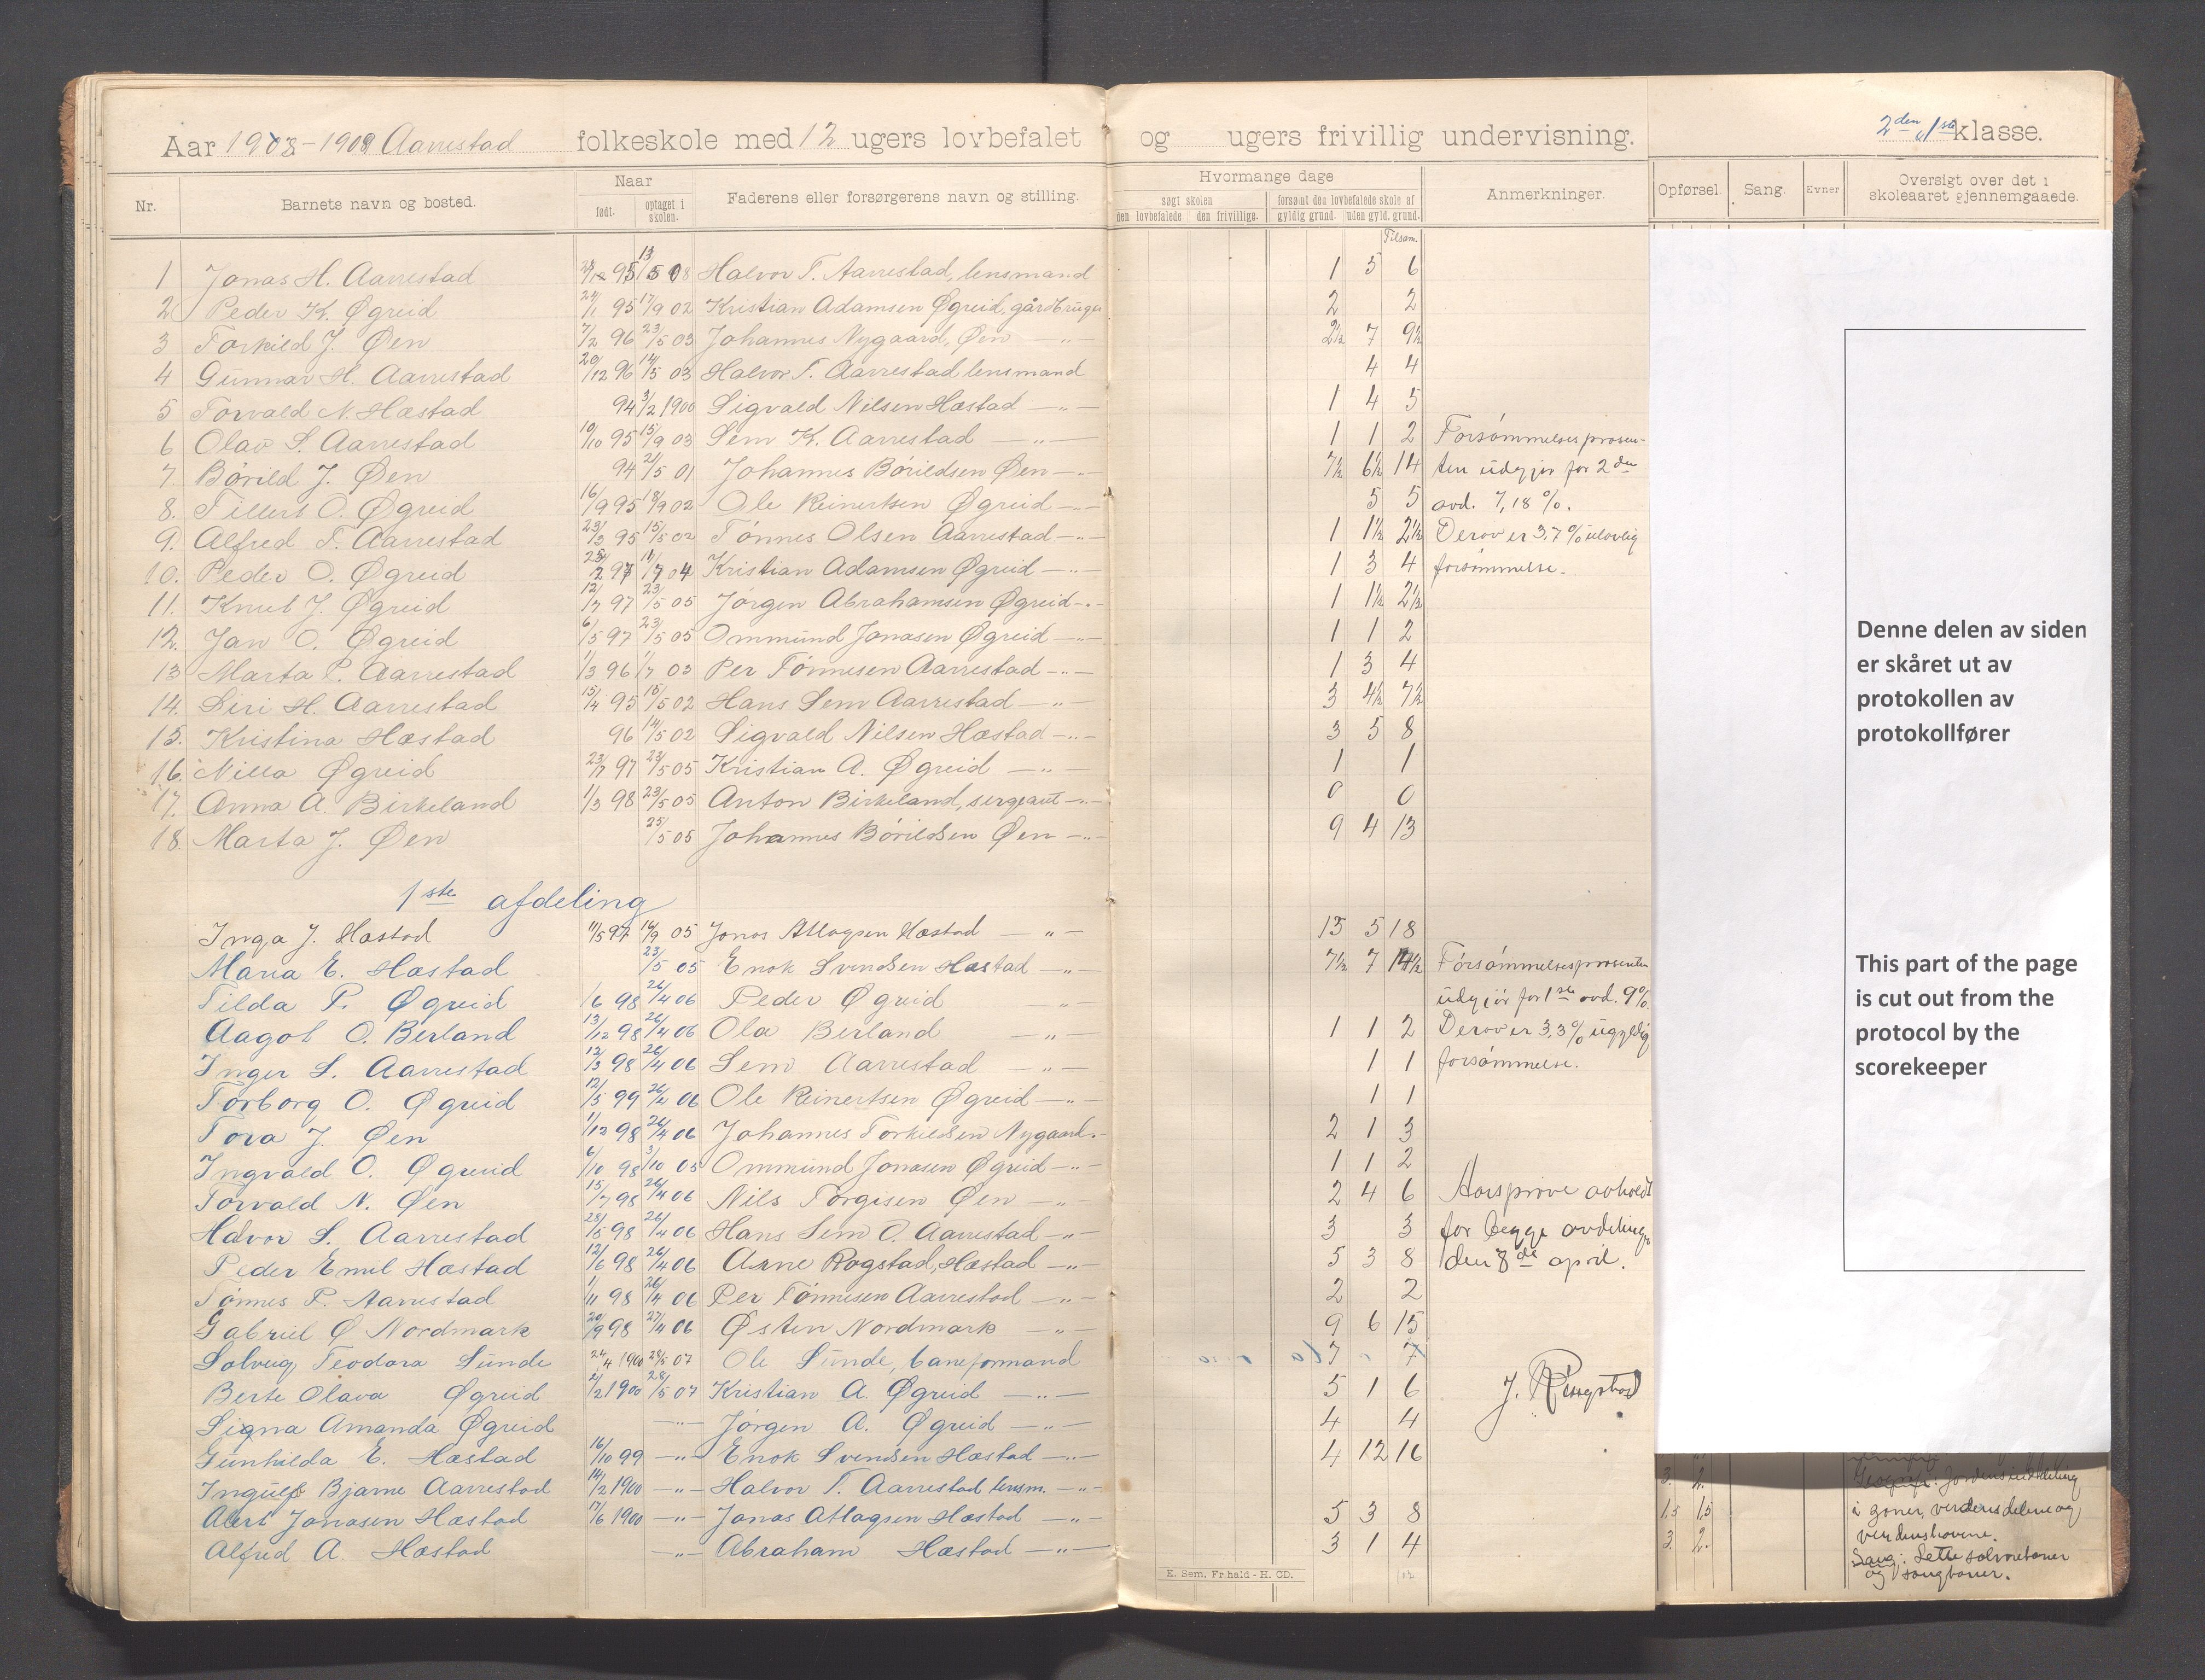 Aar 1908-1908 Aarrestad folkeskole med 12 ugers lovbefalet og ugers frivillig undervisning. 2den, 1ste klasse.
Nr. Barnets navn og bosted. Naar født. optaget i skolen. Faderens eller forsørgerens navn og stilling. Hvormange dage søgt skolen den lovbefalede den frivillige. forsømt den lovbefalede skole af gyldig grund. uden gyld. grund. Anmerkninger. Opførsel. Sang. Evner Oversigt over det i skoleaaret gjennemgaaede.
Tilsam.
1 Jonas H. Aarrestad 95 08 Halvor T. Aarrestad, lensmand 1 5 6
2 Peder K. Øgreid 24/1 95 17/9 02 Kristian Adamsen Øgreid, gårdbruger 2 2
3 Torkild J. Øen 7/2 96 23/5 03 Johannes Nygaard, Øen —"— 2½ 7 9½
4 Gunnar H. Aarrestad 20/12 96 14/5 03 Halvor T. Aarrestad lensmand 4 4
5 Torvald N. Hæstad 94 3/2 1900 Sigvald Nilsen Hæstad —"— 1 4 5
6 Olav S. Aarrestad 10/10 95 15/9 03 Sem K. Aarrestad —"— 1 1 2 Forsømmelsesprosen-
7. Børild J. Øen 94 21/5 01 Johannes Børildsen Øen —"— 7½ 6½ 14 ten udgjør for 2den
8. Tillert O. Øgreid 16/9 95 18/9 02 Ole Reinertsen Øgreid —"— 5 5 avd. 7,18 %.
9. Alfred T. Aarrestad 23/3 95 15/5 02 Tønnes Olsen Aarrestad —"— 1 1½ 2½ Derav er 3,7 % ulovlig
10. Peder O. Øgreid 97 1/7 04 Kristian Adamsen Øgreid —"— 1 3 4 forsømmelse.
11. Knut J. Øgreid 12/7 97 23/5 05 Jørgen Abrahamsen Øgreid —"— 1 1½ 2½
12. Jan O. Øgreid 6/5 97 23/5 05 Ommund Jonasen Øgreid —"— 1 1 2
13 Marta P. Aarrestad 1/3 96 1/7 03 Per Tønnesen Aarrestad —"— 1 3 4
14. Siri H. Aarrestad 15/4 95 15/5 02 Hans Sem Aarrestad —"— 3 4½ 7½
15. Kristina Hæstad 96 14/5 02 Sigvald Nilsen Hæstad —"— 3 5 8
16. Nilla Øgreid 23/7 97 23/5 05 Kristian A. Øgreid —"— 1 1
17. Anna A. Birkeland 1/3 98 23/5 05 Anton Birkeland, sergeant —"— 0 0
18. Marta J. Øen 23/5 05 Johannes Børildsen Øen —"— 9 4 13
1ste afdeling
Inga J. Hæstad 11/5 97 14/9 05 Jonas Atlagsen Hæstad —"— 13 5 18
Maria E. Hæstad 23/5 05 Enok Svendsen Hæstad —"— 7½ 7 14½ Forsømmelsesprosenten
Tilda P. Øgreid 1/6 98 26/4 06 Peder Øgreid —"— udgjør for 1ste avd. 9%.
Aagot O. Berland 13/12 98 26/4 06 Ola Berland —"— 1 1 2 Derav er 3,3% ugyldig
Inger S. Aarrestad 12/3 98 26/4 06 Sem Aarrestad —"— 1 1 forsømmelse.
Torborg O. Øgreid 12/5 99 26/4 06 Ole Reinertsen Øgreid —"— 1 1
Tora J. Øen 1/12 98 26/4 06 Johannes Torkildsen Nygaard —"— 2 1 3
Ingvald O. Øgreid 6/10 98 3/10 05 Ommund Jonasen Øgreid —"— 1 1 2
Torvald N. Øen 15/7 98 26/4 06 Nils Torgisen Øen —"— 2 4 6 Aarsprøve avholdt
Halvor S. Aarrestad 28/5 98 26/4 06 Hans Sem O. Aarrestad —"— 3 3 for begge avdelinger
Peder Emil Hæstad 12/6 98 26/4 06 Arne Rogstad, Hæstad —"— 5 3 8 den 8de april.
Tønnes P. Aarrestad 1/11 98 26/4 06 Per Tønnesen Aarrestad —"— 2 2
Gabriel Ø Nordmark 20/9 98 27/4 06 Østen Nordmark —"— 9 6 15
Solveig Teodora Sunde 24/4 1900 28/5 07 Ole Sunde, baneformand 7 7
Berte Olava Øgreid 2/2 1900 28/5 07 Kristian A. Øgreid —"— 5 1 6 J. Ringstad
Signa Amanda Øgreid —"— Jørgen A. Øgreid —"— 4 4
Gunhilda E. Hæstad 16/10 99 —"— Enok Svendsen Hæstad —"— 4 12 16
Ingulf Bjarne Aarrestad 14/2 1900 —"— Halvor T. Aarrestad lensm. —"—
Alert Jonasen Hæstad 17/6 1900 —"— Jonas Atlagsen Hæstad —"— 5 3 8
Alfred A. Hæstad —"— Abraham Hæstad —"— 3 1 4
E. Sem, Fr.hald - H. CD.
Denne delen av siden
er skåret ut av
protokollen av
protokollfører
This part of the page
is cut out from the
protocol by the
scorekeeper
3. 2. Geografi: Jordens inddeling
1,5 1,5 i zoner, verdensdelene og
3. 2. verdenshavene.
Sang: Lette salmetoner
og sangtoner.